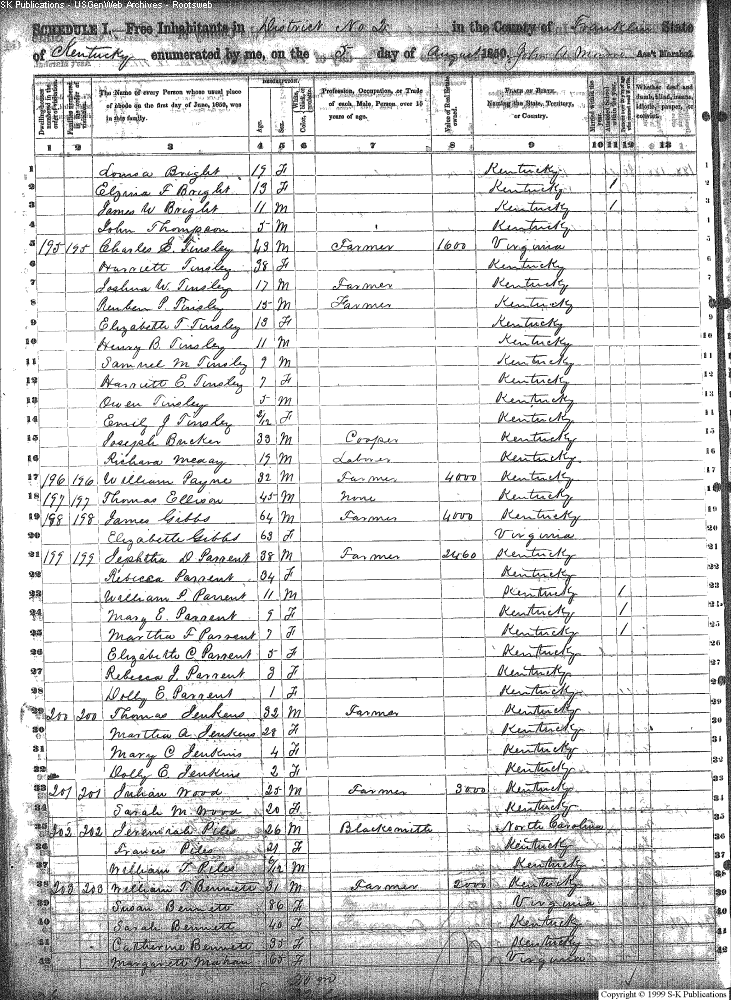 SK Publications - USGenWeb Archives - Rootsweb
SCHEDULE I.—Free Inhabitants in District No 2 in the County of Franklin State
of Kentucky enumerated by me, on the 5 day of August 1850. John A. Monroe Ass't Marshal.
DESCRIPTION.
The Name of every Person whose usual place of abode on the first day of June, 1850, was in this family.
Age.
Sex.
Profession, Occupation, or Trade of each Male Person over 15 years of age.
Value of Real Estate owned.
PLACE OF BIRTH. Naming the State, Territory, or Country.
Whether deaf and dumb, blind, insane, idiotic, pauper, or convict.
1 2 3 4 5 6 7 8 9 10 11 12 13
1 Louisa Bright 19 F Kentucky 1
2 Elzina F Bright 13 F Kentucky / 2
3 James W Bright 11 M Kentucky / 3
4 John Thompson 5 M Kentucky 4
5 195 195 Charles E. Tinsley 43 M Farmer 1600 Virginia 5
6 Harriett Tinsley 38 F Kentucky 6
7 Joshua W. Tinsley 17 M Farmer Kentucky 7
8 Reuben P. Tinsley 15 M Farmer Kentucky 8
9 Elizabeth T Tinsley 13 F Kentucky 9
10 Henry B. Tinsley 11 M Kentucky 10
11 Samuel M Tinsley 9 M Kentucky 11
12 Harriett E. Tinsley 7 F Kentucky 12
13 Owen Tinsley 5 M Kentucky 13
14 Emily J Tinsley 2/12 F Kentucky 14
15 Joseph Bucker 33 M Cooper Kentucky 15
16 Richard 19 M Laborer Kentucky 16
17 196 196 William Payne 32 M Farmer 4000 Kentucky 17
18 197 197 Thomas Ellison 45 M None Kentucky 18
19 198 198 James Gibbs 64 M Farmer 4000 Kentucky 19
20 Elizabeth Gibbs 63 F Virginia 20
21 199 199 Jephtha D Parrent 38 M Farmer 2460 Kentucky 21
22 Rebecca Parrent 34 F Kentucky 22
23 William P Parrent 11 M Kentucky / 23
24 Mary E. Parrent 9 F Kentucky / 24
25 Martha F Parrent 7 F Kentucky / 25
26 Elizabeth C Parrent 5 F Kentucky 26
27 Rebecca J. Parrent 3 F Kentucky 27
28 Dolly E. Parrent 1 F Kentucky 28
29 200 200 Thomas Jenkens 32 M Farmer Kentucky 29
30 Martha A. Jenkens 28 F Kentucky 30
31 Mary C Jenkins 4 F Kentucky 31
32 Dolly E Jenkins 2 F Kentucky 32
33 201 201 Julian Wood 25 M Farmer 3000 Kentucky 33
34 Sarah M. Wood 20 F Kentucky 34
35 202 202 Jeremiah Piles 26 M Blacksmith North Carolina 35
36 Francis Piles 21 F Kentucky 36
37 William T Piles 6/12 M Kentucky 37
38 203 203 William T Bennett 31 M Farmer 2000 Kentucky 38
39 Susan Bennett 86 F Virginia 39
40 Sarah Bennett 40 F Kentucky 40
41 Catherine Bennett 35 F Kentucky 41
42 Margarett Mahan 65 F Virginia 42
Copyright © 1999 S-K Publications